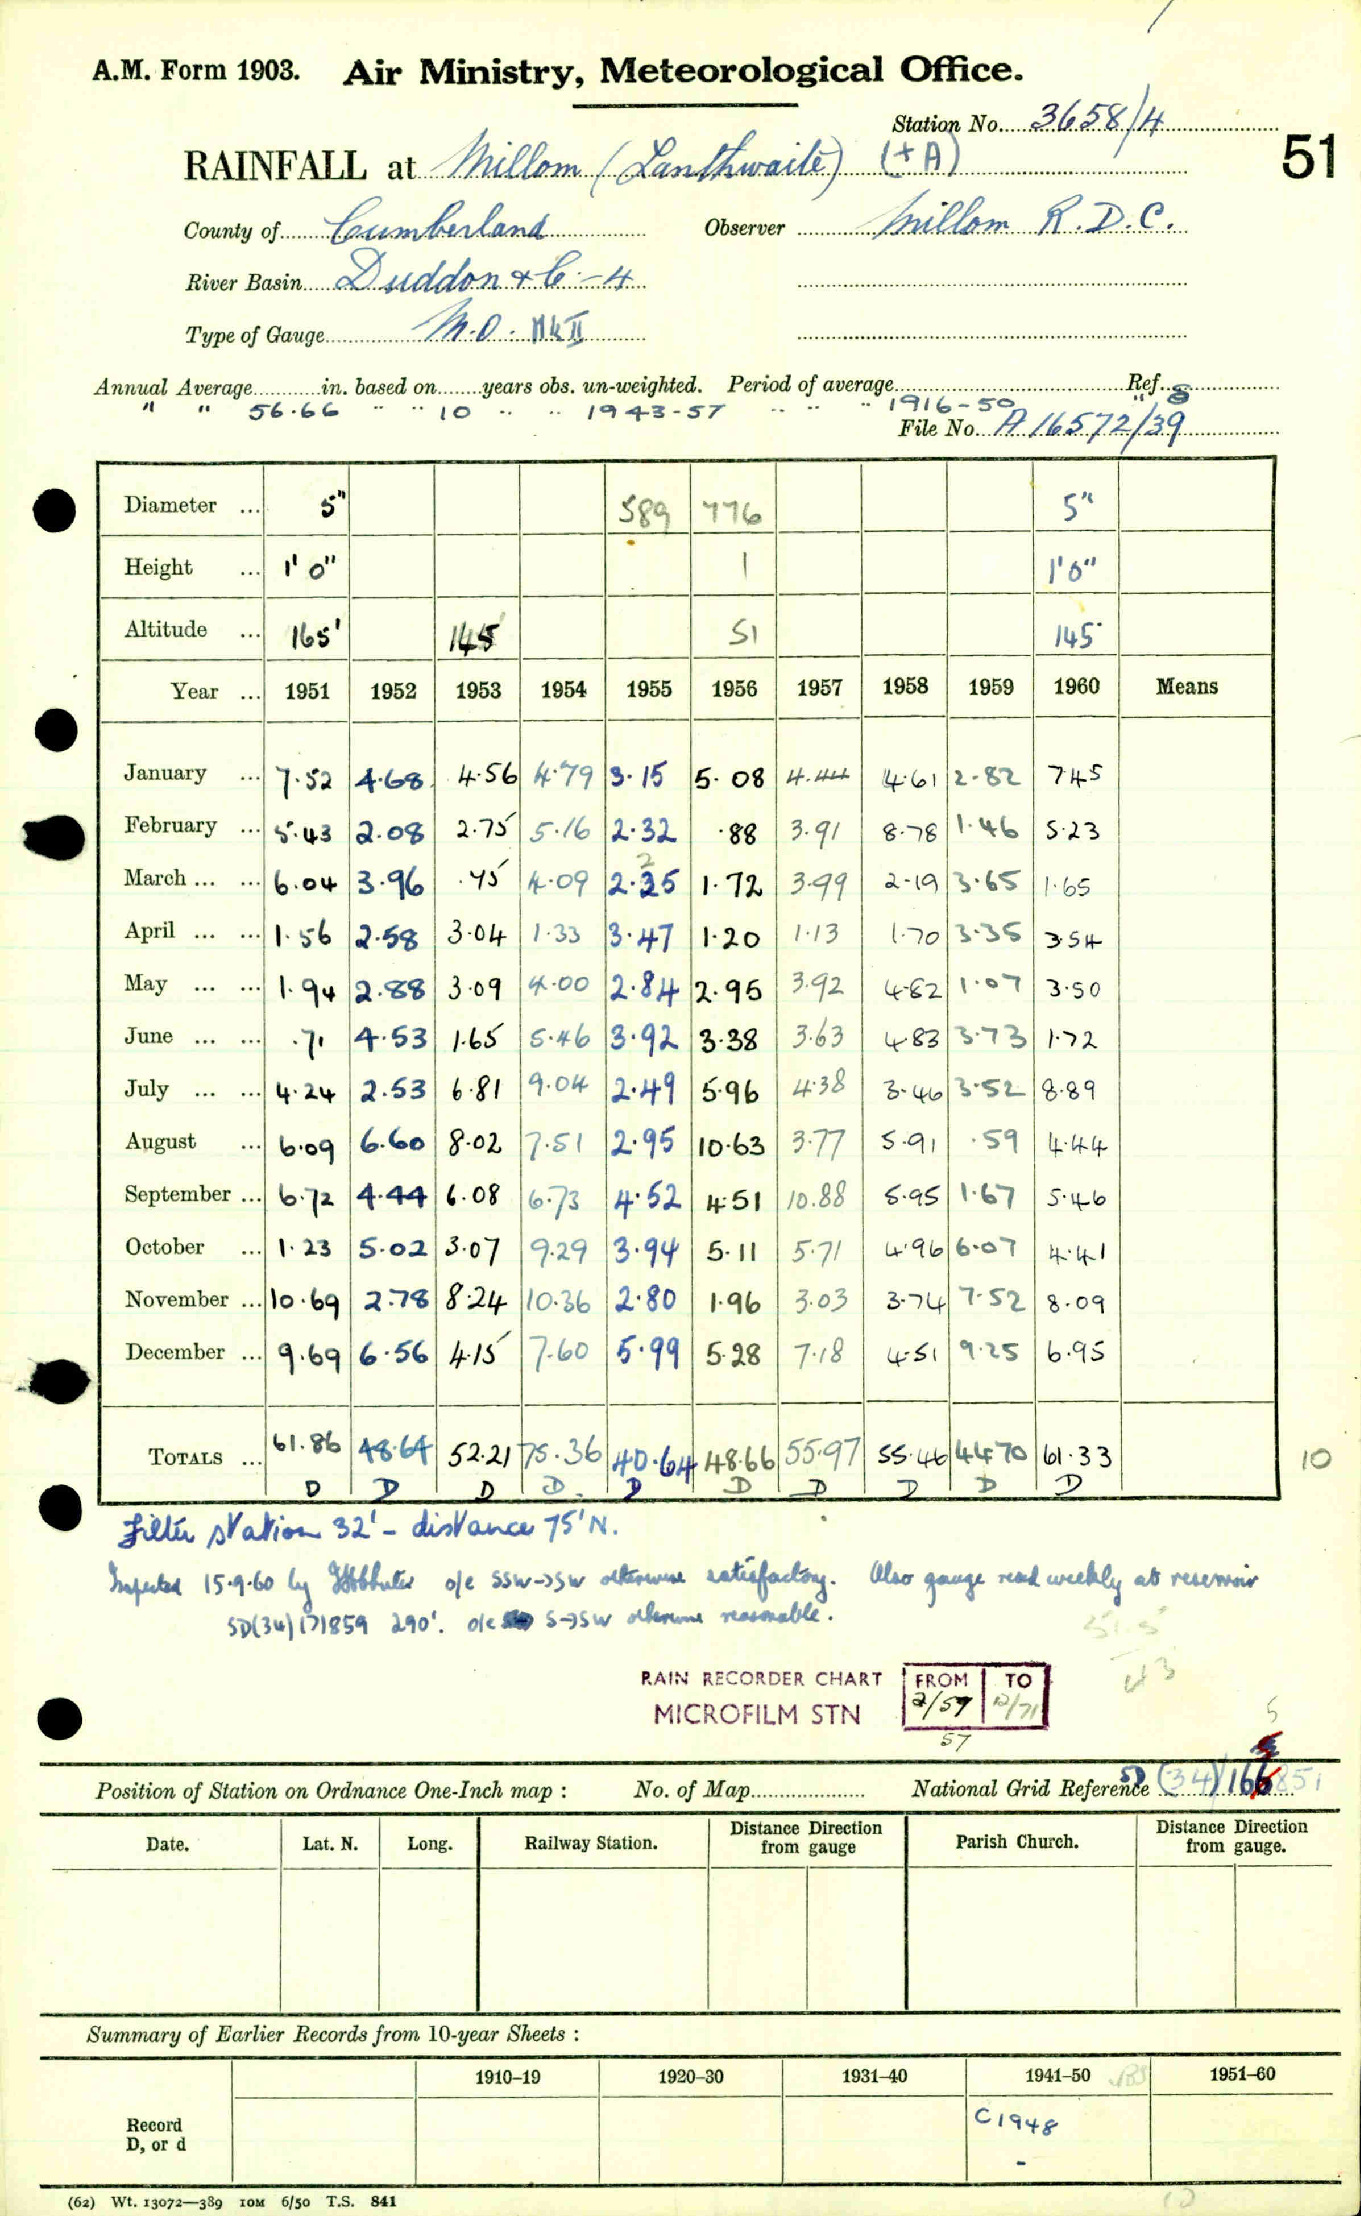 A.M. Form 1903. Air Ministry, Meteorological Office.
Station No. 3658/4
51
RAINFALL at Millom (Lanthwaite) (+A)
County of Cumberland Observer Millom R.D.C.
River Basin Duddon & C - 4
Type of Gauge M.O. Mk II
Annual Average in. based on years obs. un-weighted. Period of average Ref.
" " 56.66 " " 10 " " 1943-57 " " " 1916-50 " 8
File No. A 16572/39
Diameter ... 5" 589 776 5"
Height ... 1' 0" 1 1'0"
Altitude ... 165' 145 51 145
Year ... 1951 1952 1953 1954 1955 1956 1957 1958 1959 1960 Means
January ... 7.52 4.68 4.56 4.79 3.15 5.08 4.44 4.61 2.82 7.45
February ... 5.43 2.08 2.75 5.16 2.32 .88 3.91 8.78 1.46 5.23
2
March ... ... 6.04 3.96 .75 4.09 2.25 1.72 3.99 2.19 3.65 1.65
April ... ... 1.56 2.58 3.04 1.33 3.47 1.20 1.13 1.70 3.35 3.54
May ... ... 1.94 2.88 3.09 4.00 2.84 2.95 3.92 4.82 1.07 3.50
June ... ... .71 4.53 1.65 5.46 3.92 3.38 3.63 4.83 3.73 1.72
July ... ... 4.24 2.53 6.81 9.04 2.49 5.96 4.38 3.46 3.52 8.89
August ... 6.09 6.60 8.02 7.51 2.95 10.63 3.77 5.91 .59 4.44
September ... 6.72 4.44 6.08 6.73 4.52 4.51 10.88 5.95 1.67 5.46
October ... 1.23 5.02 3.07 9.29 3.94 5.11 5.71 4.96 6.07 4.41
November ... 10.69 2.78 8.24 10.36 2.80 1.96 3.03 3.74 7.52 8.09
December ... 9.69 6.56 4.15 7.60 5.99 5.28 7.18 4.51 9.25 6.95
TOTALS ... 61.86 48.64 52.21 75.36 40.64 48.66 55.97 55.46 44.70 61.33 10
D D D D D D D D D D
Filter station 32' - distance 75' N.
Inspected 15.9.60 by o/e SSW→SW otherwise satisfactory. Also gauge read weekly at reservoir
SD(34)171859 290'. o/e S→SW otherwise reasonable.
51.5
RAIN RECORDER CHART FROM TO
MICROFILM STN 2/59 12/71
57
5
Position of Station on Ordnance One-Inch map : No. of Map National Grid Reference SD (34) 166 851
Date. Lat. N. Long. Railway Station. Distance Direction from gauge Parish Church. Distance Direction from gauge.
Summary of Earlier Records from 10-year Sheets :
1910-19 1920-30 1931-40 1941-50 1951-60
Record C1948
D, or d -
(62) Wt. 13072—389 10M 6/50 T.S. 841
10